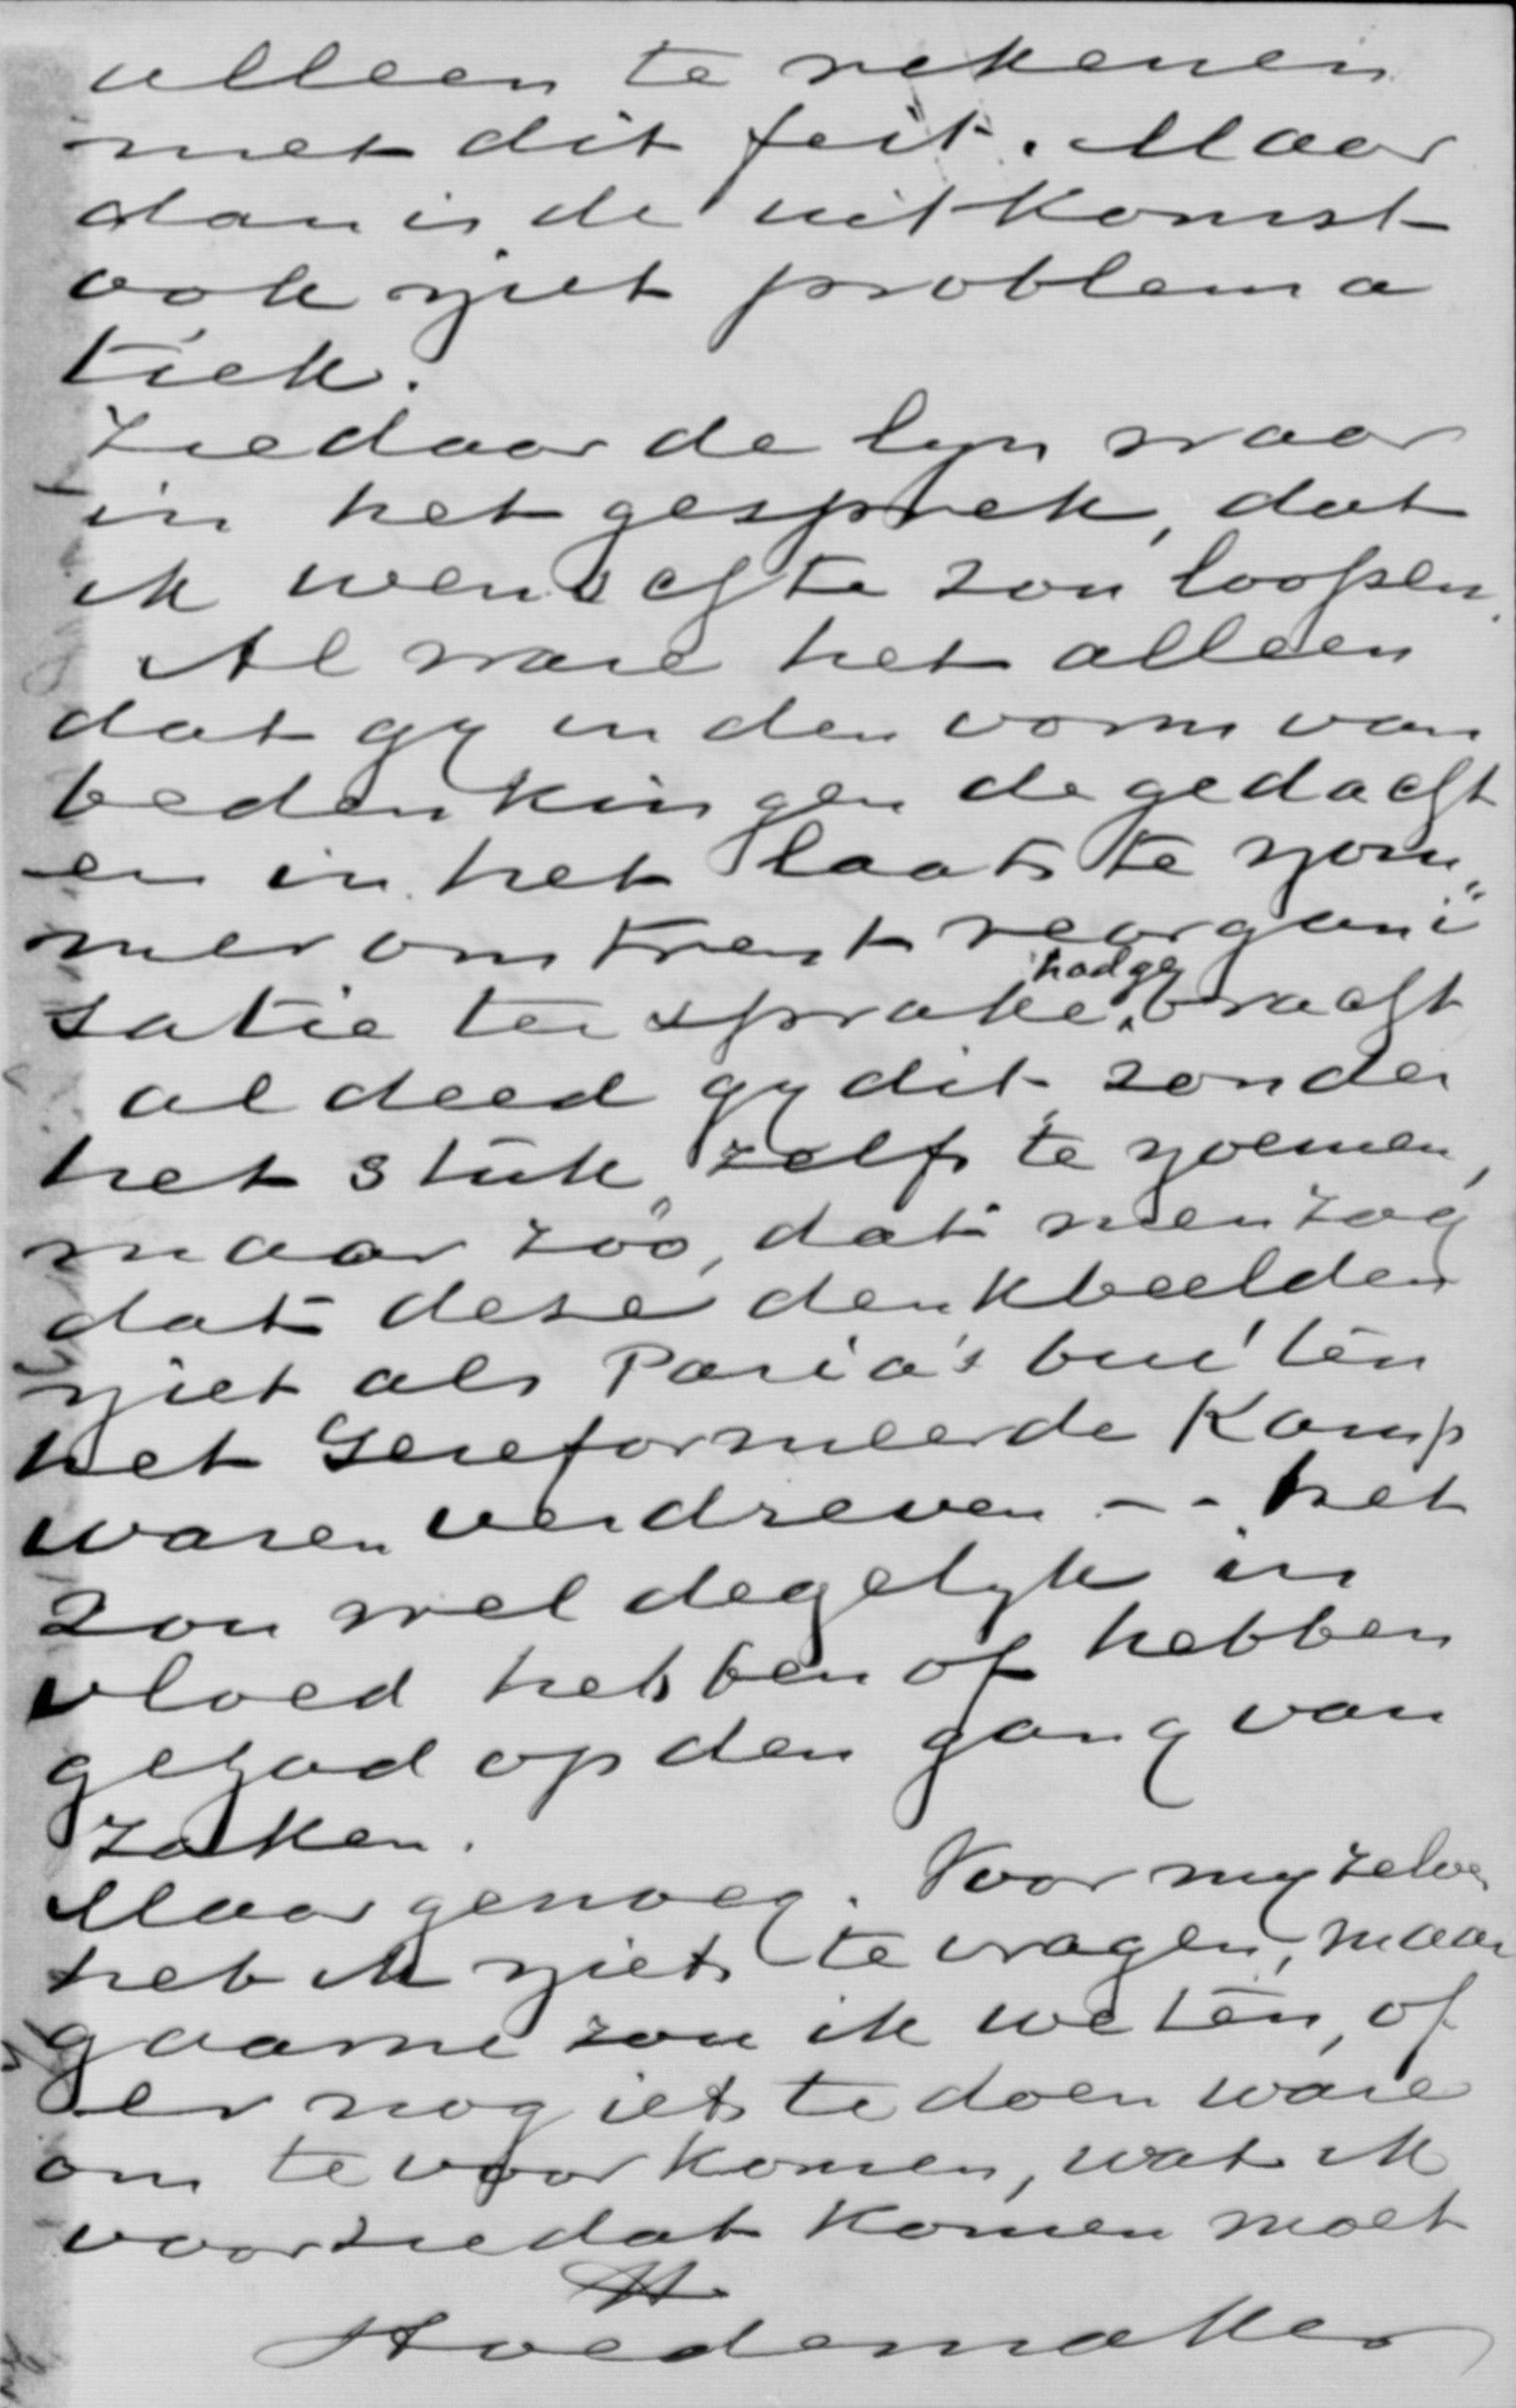 alleen te rekenen
met dit feit. Maar
dan is de uitkomst
ook niet problema
tiek.
Ziedaar de lyn waar
in het gesprek, dat
ik wenschte zou loopen.
Al ware het alleen
dat gy in den vorm van
bedenkingen de gedacht
en in het laatste nom„
mer omtrent reorgani„
satie ter sprake had gy bracht
al deed gy dit, zonder
het stuk zelfs te noemen,
maar zóó, dat men zag
dat deze denkbeelden
niet als Paria's buiten
het Gereformeerde Kamp
waren verdreven -- het
zou wel degelyk in
vloed hebben of hebben
gehad op den gang van
zaken.
Maar genoeg. Voor myzelve
heb ik niets te vragen, maar
gaarne zou ik weten, of
er nog iets te doen ware
om te voorkomen, wat ik
voorzie dat komen moet
tt
Hoedemaker